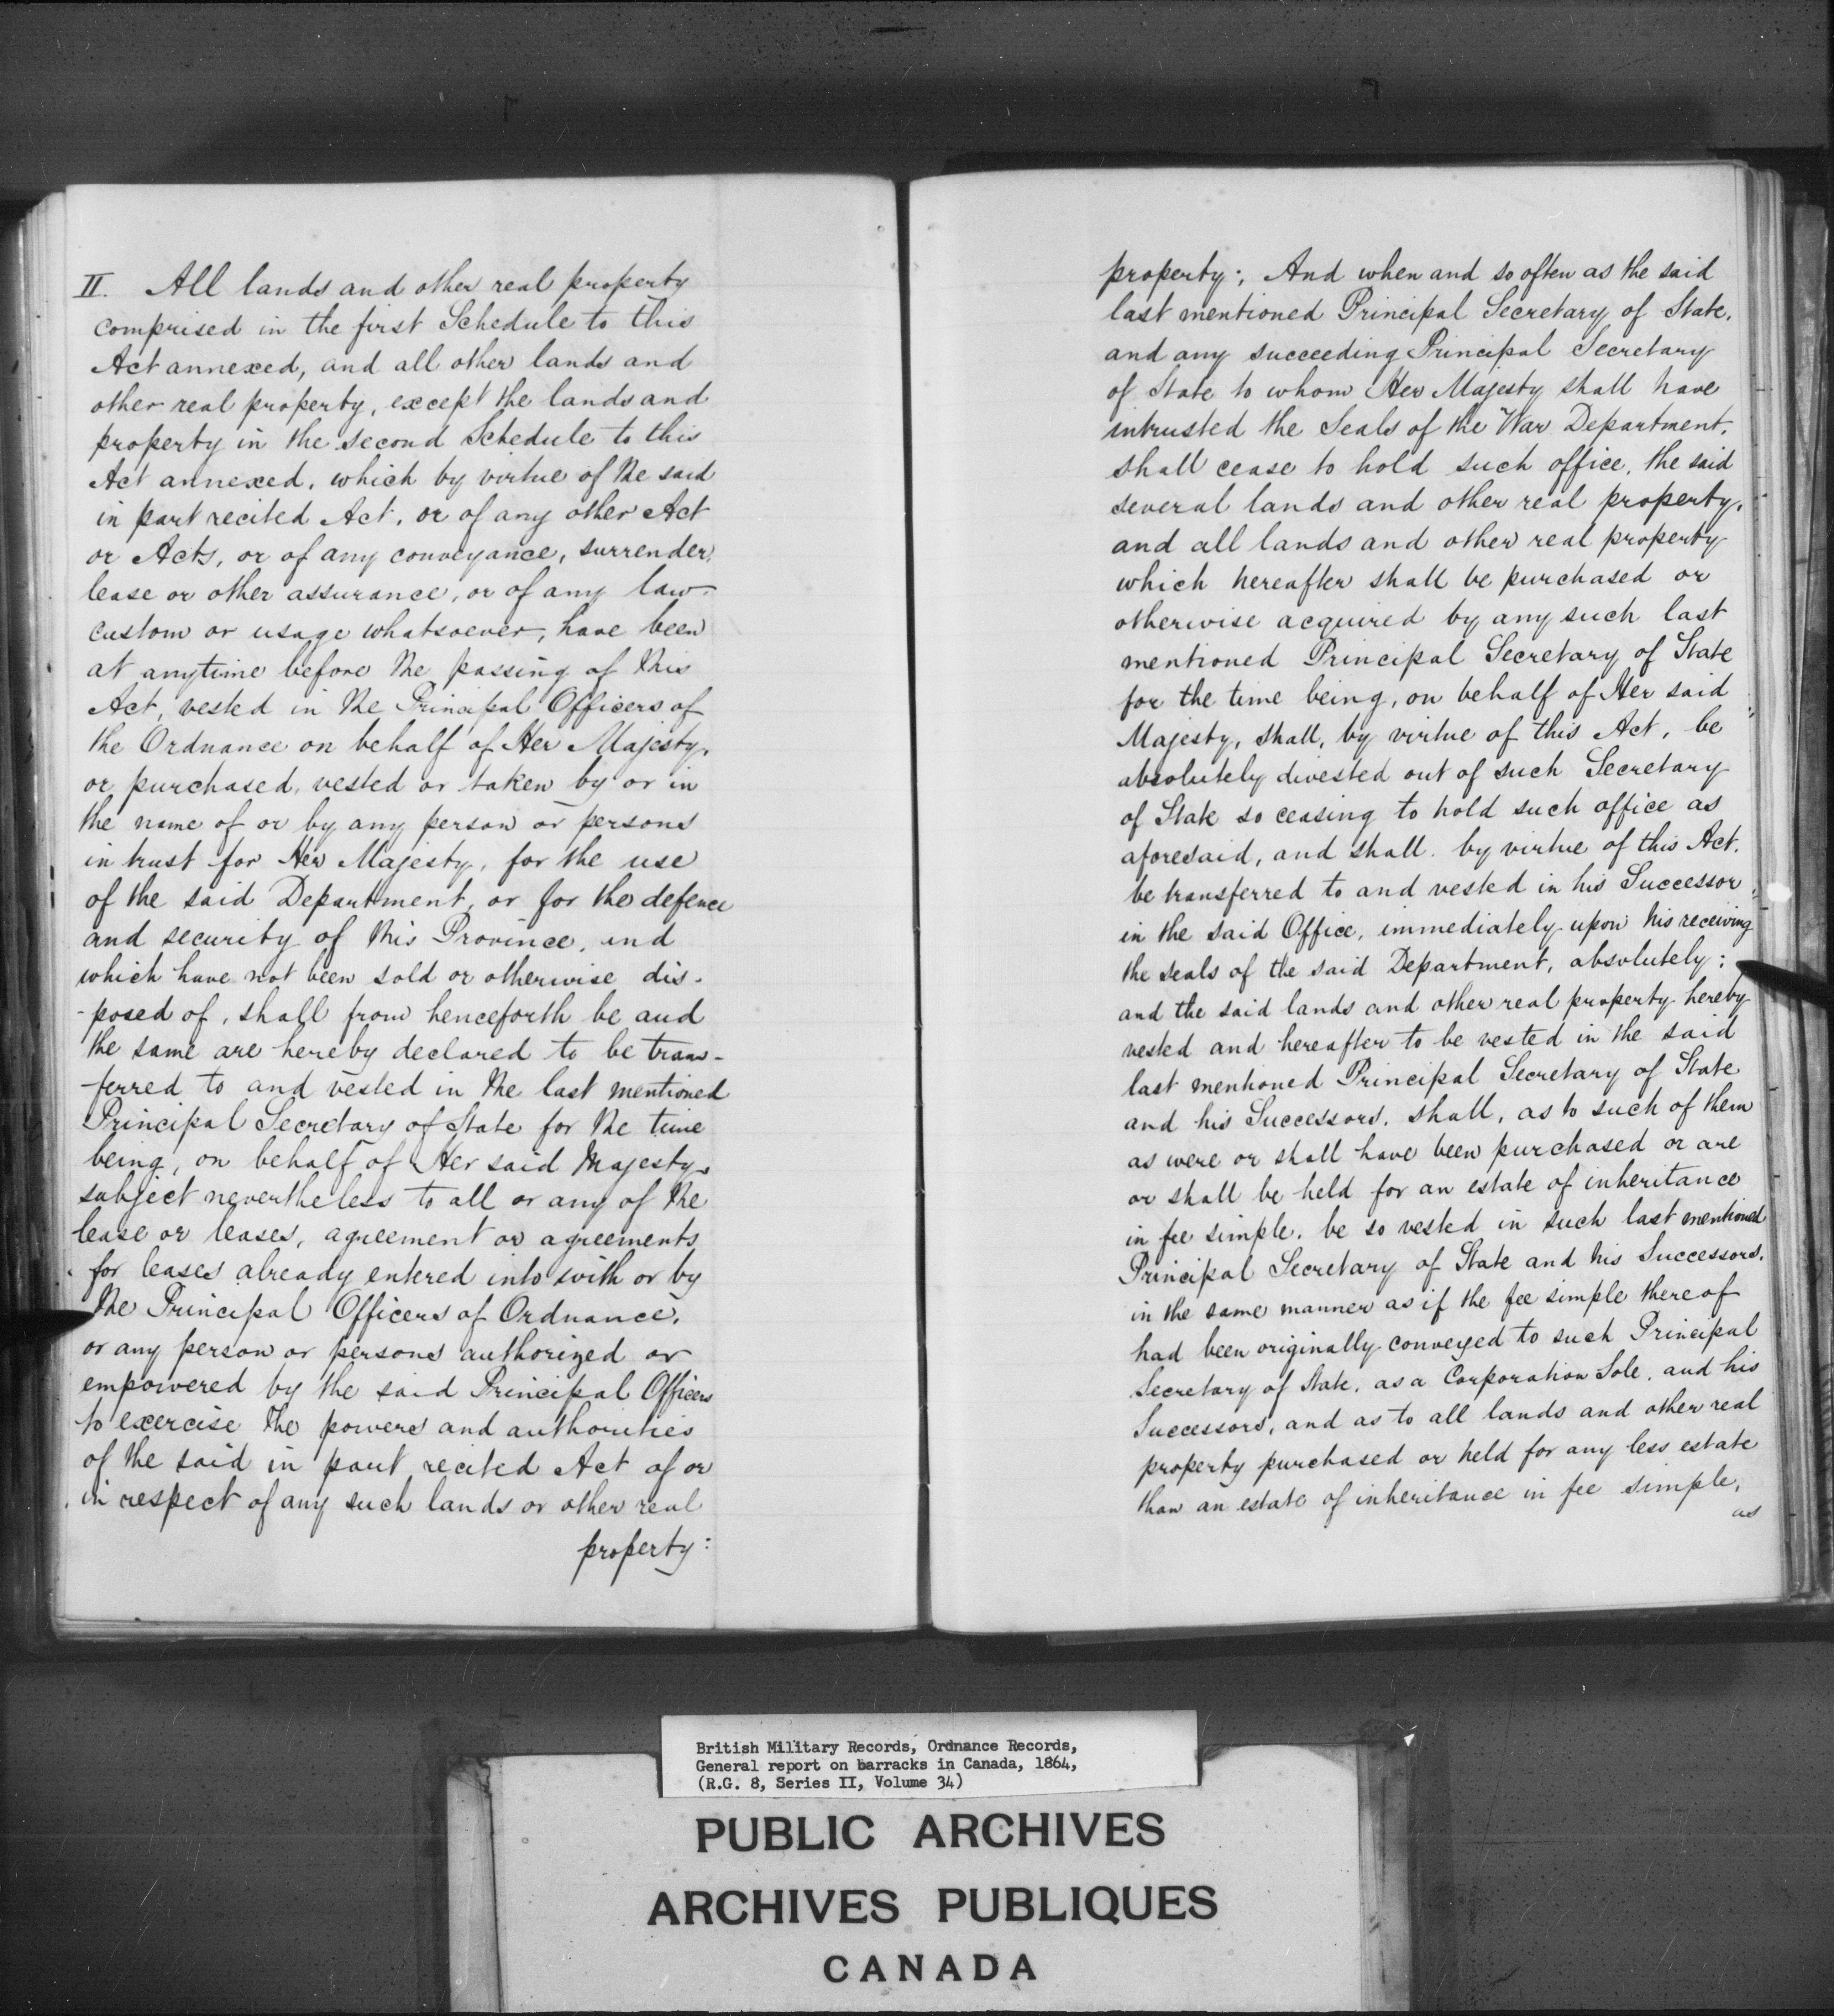 II. All lands and other real property
comprised in the first Schedule to this
Act annexed, and all other lands and
other real property, except the lands and
property in the second Schedule to this
Act annexed, which by virtue of the said
in part recited Act, or of any other Act
or Acts, or of any conveyance, surrender,
lease or other assurance, or of any law
custom or usage whatsoever, have been
at anytime before the passing of this
Act, vested in the Principal Officers of
the Ordnance on behalf of Her Majesty,
or purchased, vested or taken by or in
the name of or by any person or persons
in trust for Her Majesty, for the use
of the said Department, or for the defence
and security of this Province, and
which have not been sold or otherwise dis-
-posed of, shall from henceforth be and
the same are hereby declared to be trans-
-ferred to and vested in the last mentioned
Principal Secretary of State for the time
being, on behalf of Her said Majesty,
subject nevertheless to all or any of the
lease or leases, agreement or agreements
for leases already entered into with or by
the Principal Officers of Ordnance,
or any person or persons authorized or
empowered by the said Principal Officers
to exercise the powers and authorities
of the said in part recited Act of or
in respect of any such lands or other real
property:
property; And when and so often as the said
last mentioned Principal Secretary of State,
and any succeeding Principal Secretary
of State to whom Her Majesty shall have
intrusted the Seals of the War Department,
shall cease to hold such office, the said
several lands and other real property,
and all lands and other real property
which hereafter shall be purchased or
otherwise acquired by any such last
mentioned Principal Secretary of State
for the time being, on behalf of Her said
Majesty, shall, by virtue of this Act, be
absolutely divested out of such Secretary
of State so ceasing to hold such office as
aforesaid, and shall. by virtue of this Act.
be transferred to and vested in his Successor
in the said Office, immediately upon his receiving
the seals of the said Department, absolutely:
and the said lands and other real property hereby
vested and hereafter to be vested in the said
last mentioned Principal Secretary of State
and his Successors, shall, as to such of them
as were or shall have been purchased or are
or shall be held for an estate of inheritance
in fee simple, be so vested in such last mentioned
Principal Secretary of State and his Successors,
in the same manner as if the fee simple thereof
had been originally conveyed to such Principal
Secretary of State, as a Corporation Sole, and his
Successors, and as to all lands and other real
property purchased or held for any less estate
than an estate of inheritance in fee simple,
as
British Military Records, Ordnance Records,
General report on barracks in Canada, 1864,
(R.G. 8, Series II, Volume 34)
PUBLIC ARCHIVES
ARCHIVES PUBLIQUES
CANADA